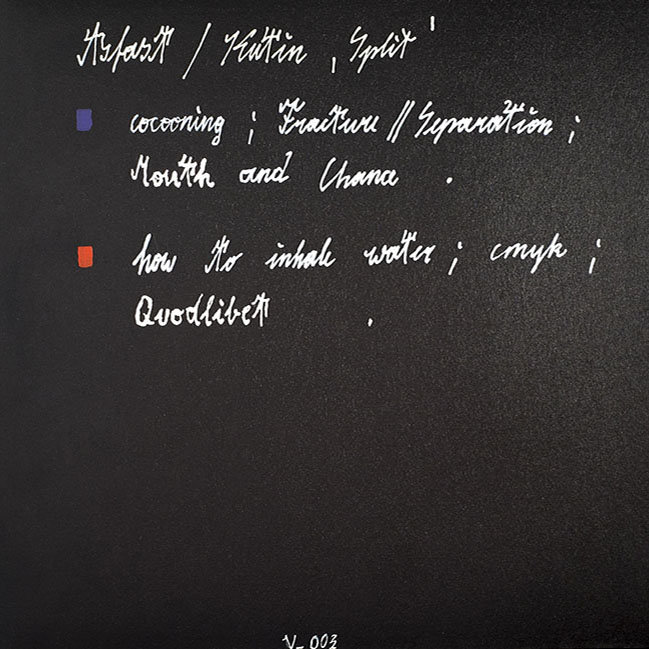 Asfast / Kutin , Split '
cocooning ; Fracture // Separation ;
Mouth and Chance .
how to inhale water ; cmyk ;
Quodlibet .
V_003